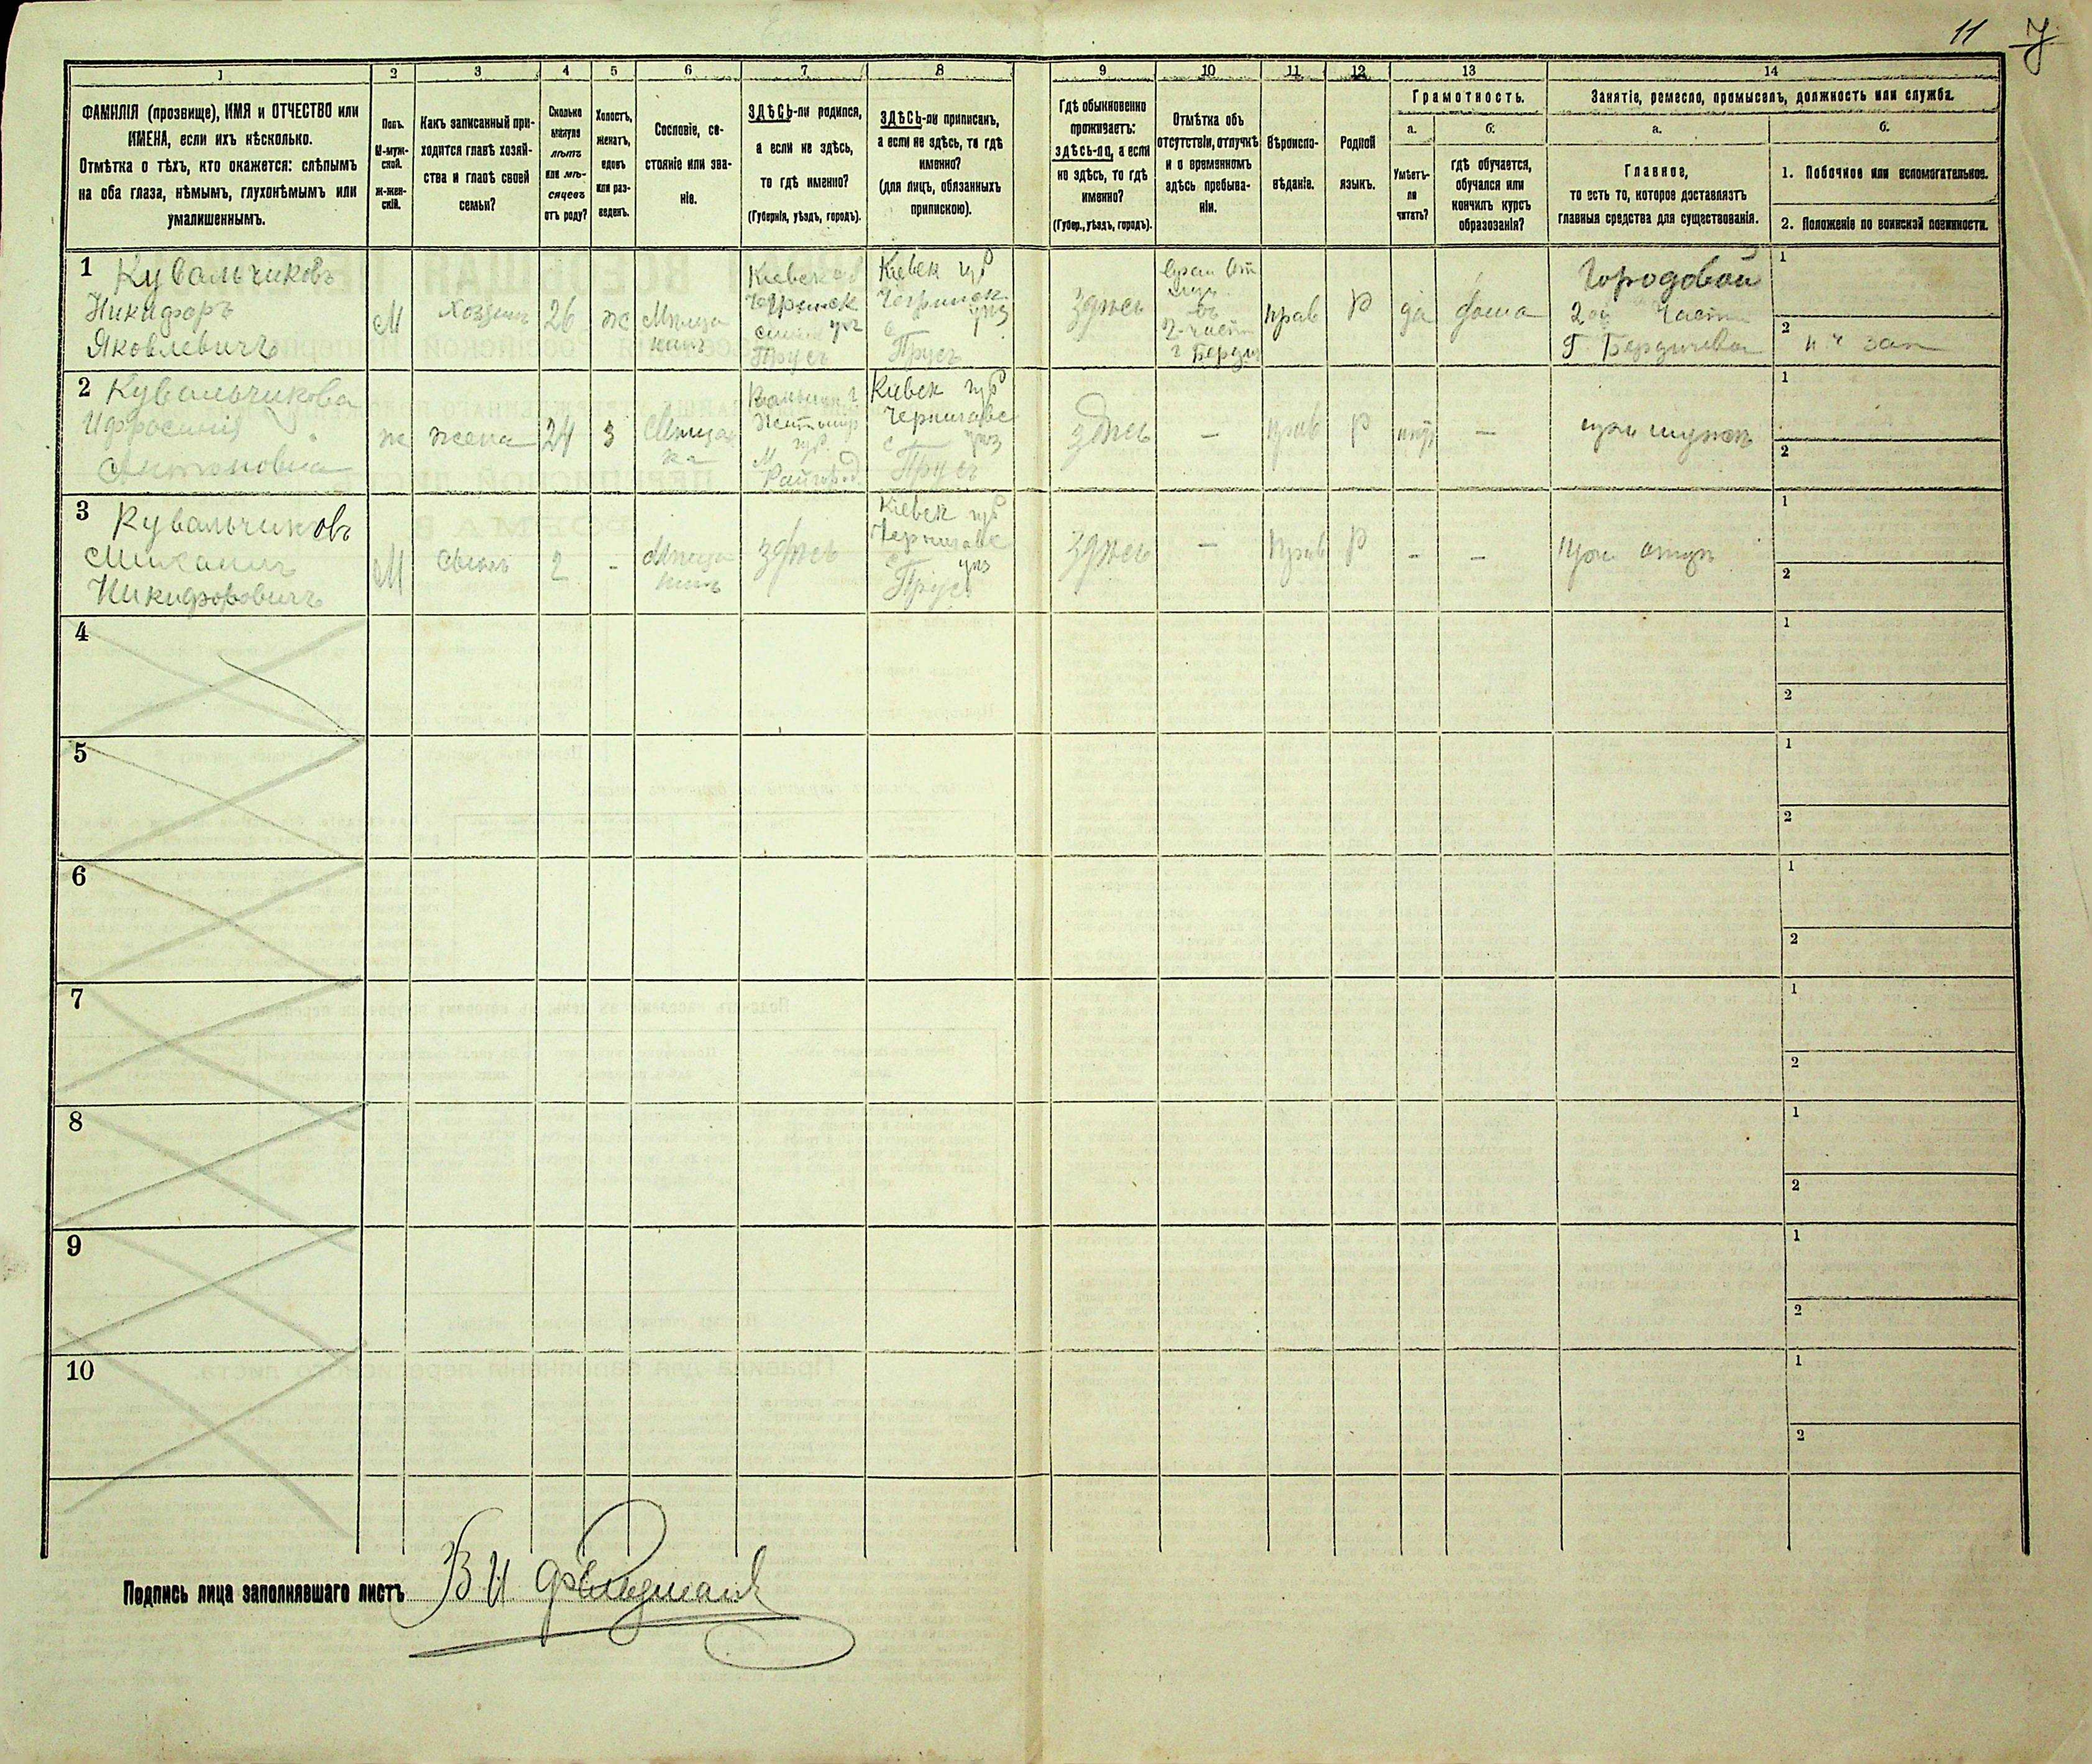 11 7
1 2 3 4 5 6 7 8 9 10 11 12 13 14
ФАМИЛІЯ (прозвище), ИМЯ и ОТЧЕСТВО или
ИМЕНА, если ихъ нѣсколько.
Отмѣтка о тѣхъ, кто окажется: слѣпымъ
на оба глаза, нѣмымъ, глухонѣмымъ или
умалишеннымъ.
Полъ.
М-муж-
ской.
ж-жен-
скій.
Какъ записанный при-
ходится главѣ хозяй-
ства и главѣ своей
семьи?
Сколько
минуло
лѣтъ
или мѣ-
сяцевъ
отъ роду?
Холостъ,
женатъ,
вдовъ
или раз-
веденъ.
Сословіе, со-
стояніе или зва-
ніе.
ЗДѢСЬ-ли родился,
а если не здѣсь,
то гдѣ именно?
(Губернія, уѣздъ, городъ).
ЗДѢСЬ-ли приписанъ,
а если не здѣсь, то гдѣ
именно?
(для лицъ, обязанныхъ
припискою).
Гдѣ обыкновенно
проживаетъ:
здѣсь-ли, а если
не здѣсь, то гдѣ
именно?
(Губер., уѣздъ, городъ).
Отмѣтка объ
отсутствіи, отлучкѣ
и о временномъ
здѣсь пребыва-
ніи.
Вѣроиспо-
вѣданіе.
Родной
языкъ.
Грамотность.
а.
Умѣетъ-
ли
читать?
б.
гдѣ обучается,
обучался или
кончилъ курсъ
образованія?
Занятіе, ремесло, промыселъ, должность или служба.
а.
Главное,
то есть то, которое доставляетъ
главныя средства для существованія.
б.
1. Побочное или вспомогательное.
2. Положеніе по воинской повинности.
1 Кувальчиковъ
Никифоръ
Яковлевичъ
М
Хозяин
26
ж
Мѣща
нинъ
Кіевск губ
Чегринск
уѣз
Прусъ
Кіевск губ
Чегринск
уѣз
с
Прусъ
здѣсь
въ
2-части
г Берди
прав
Р
да
дома
Городовой
2ой Части
Г Бердичева
1
2
2 Кувальчикова
Ифросинія
Антоновна
ж
жена
24
з
Мѣщан
ка
м
Райгород
Кіевск губ
уѣз
с
Прусъ
здѣсь
—
прав
Р
нѣт
—
при мужѣ
1
2
3 Кувальчиковъ
Михаилъ
Никифоровичъ
М
Сынъ
2
-
Мѣща
нинъ
здѣсь
Кіевск губ
с уѣз
Прусъ
здѣсь
—
прав
Р
-
-
при отцѣ
1
2
4 1
2
5 1
2
6 1
2
7 1
2
8 1
2
9 1
2
10 1
2
Подпись лица заполнявшаго листъ В И Фельдман